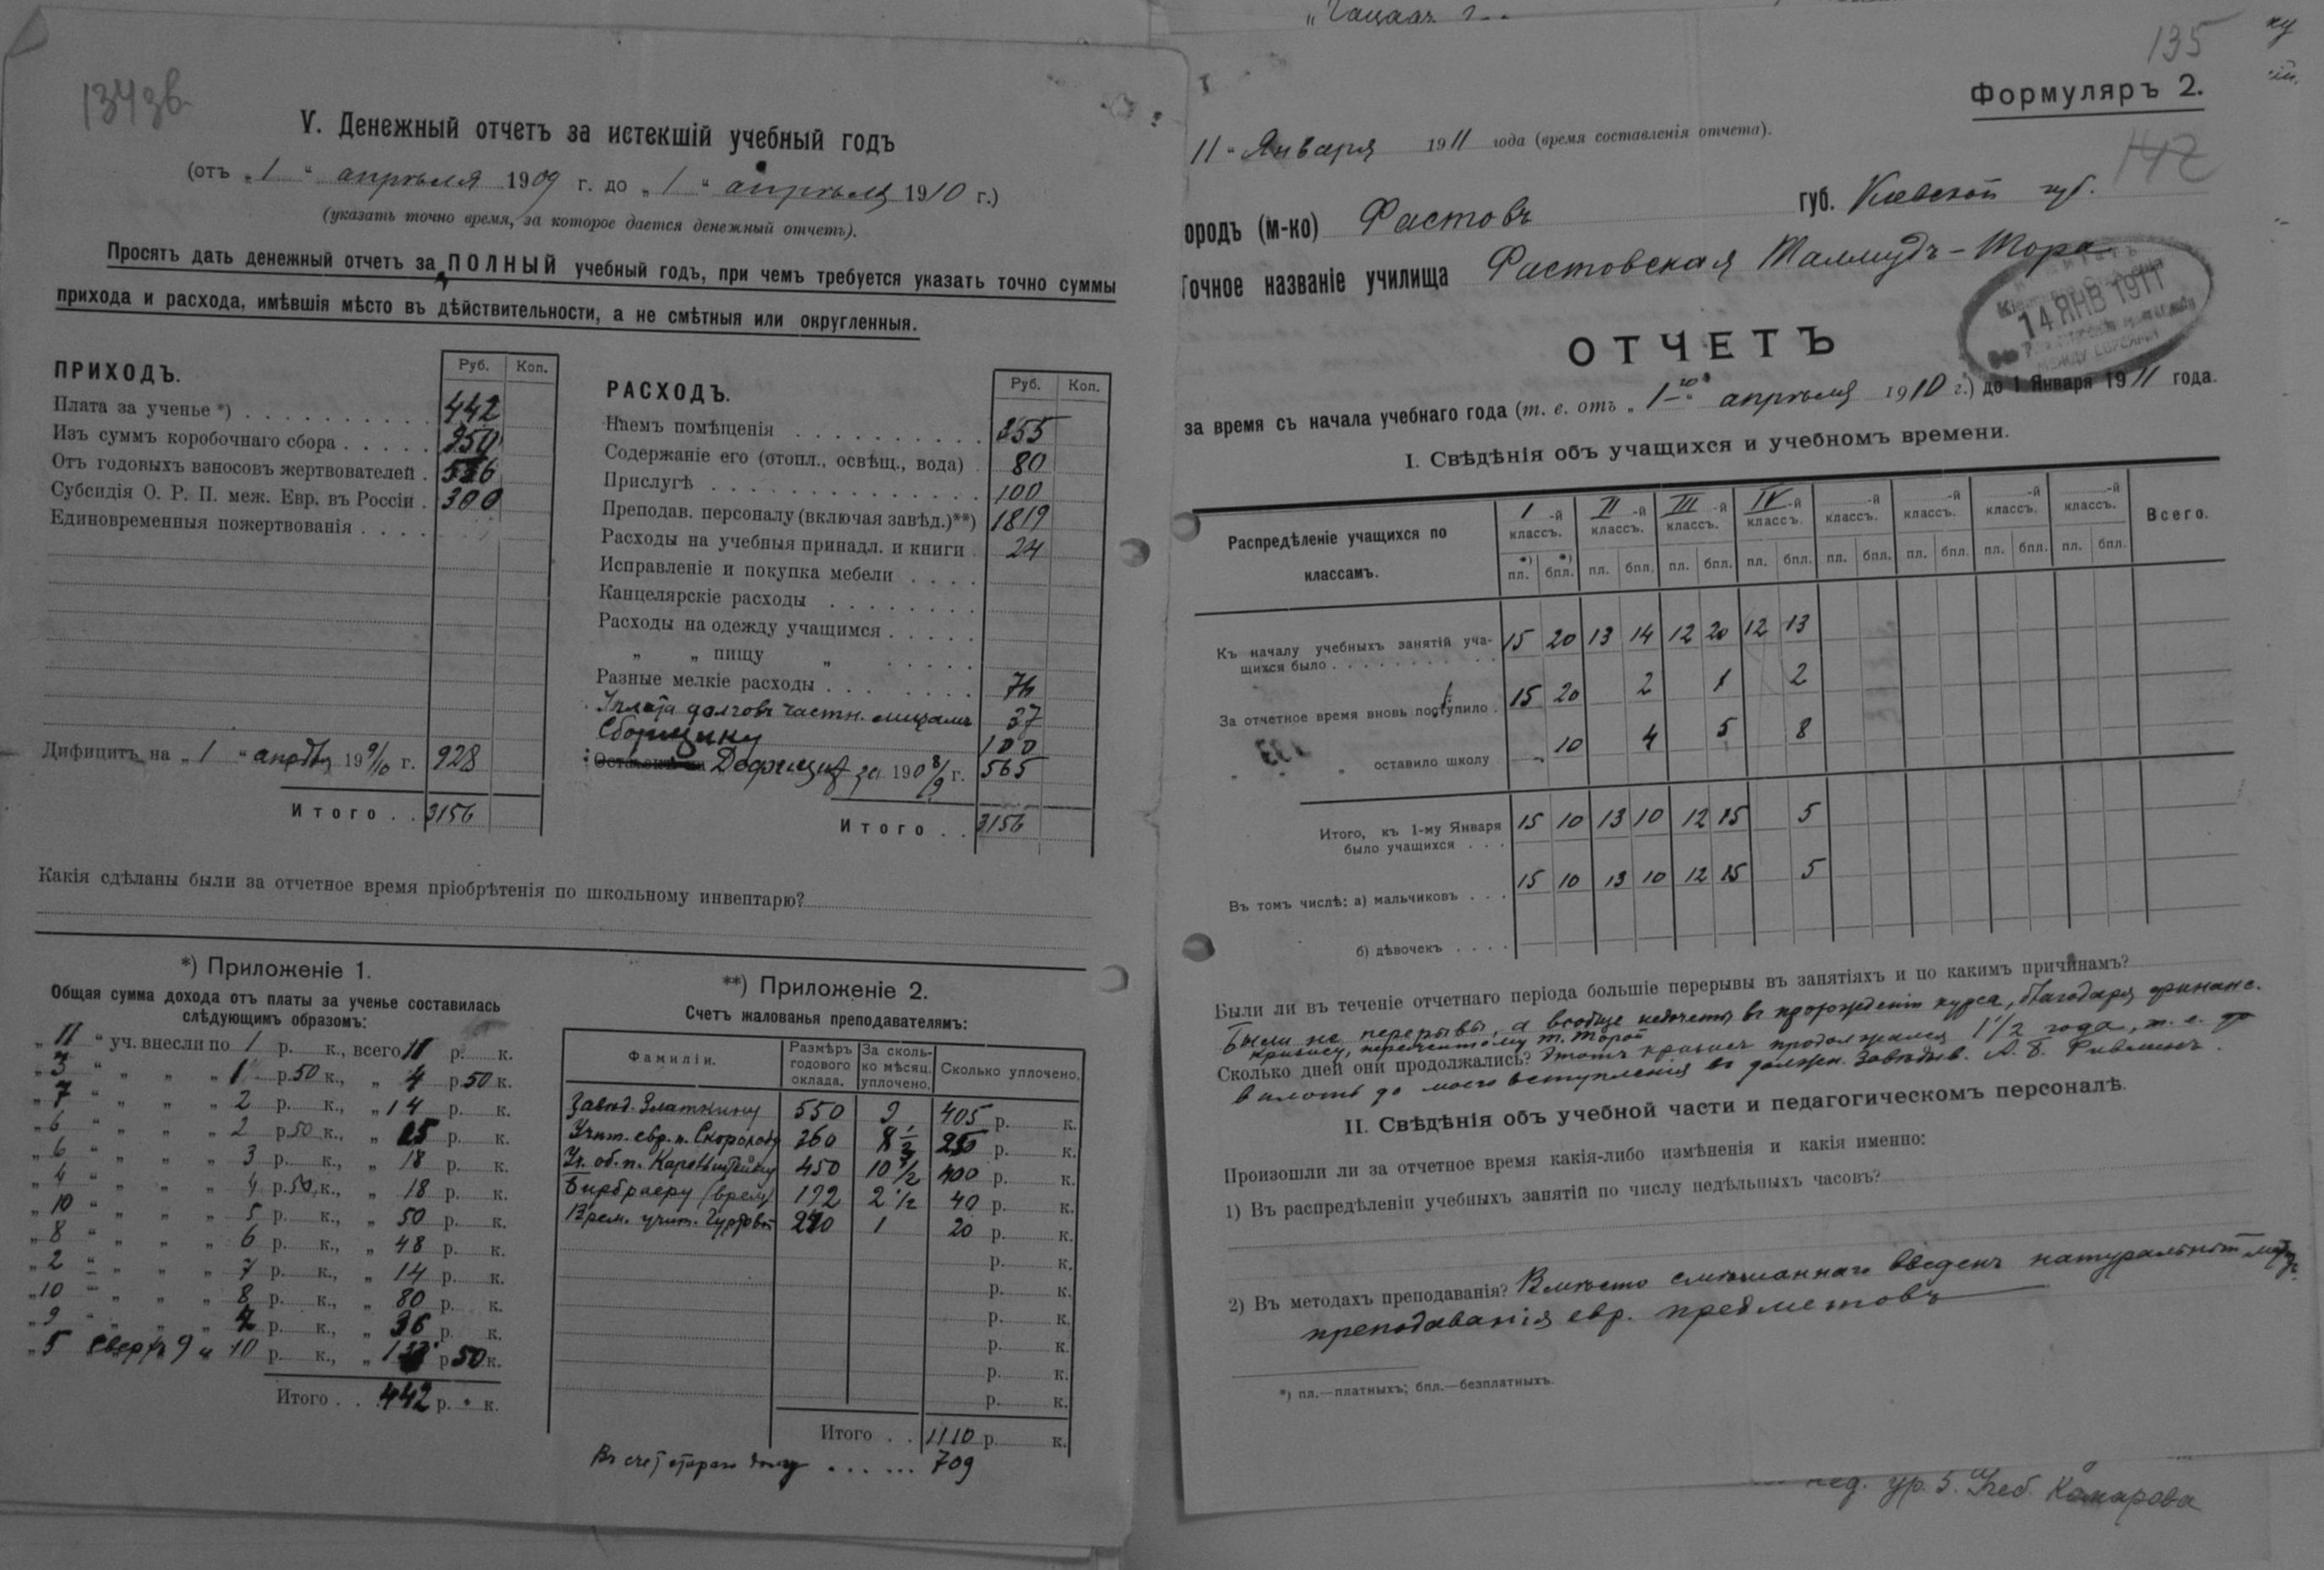 134 зв
V. Денежный отчетъ за истекшій учебный годъ
(отъ „1“ апрѣля 1909 г. до „1“ апрѣля 1910 г.)
(указать точно время, за которое дается денежный отчетъ).
Просятъ дать денежный отчетъ за ПОЛНЫЙ учебный годъ, при чемъ требуется указать точно суммы
прихода и расхода, имѣвшія мѣсто въ дѣйствительности, а не смѣтныя или округленныя.
ПРИХОДЪ. Руб. Коп.
Плата за ученье *) 442
Изъ суммъ коробочнаго сбора 950
Отъ годовыхъ взносовъ жертвователей 536
Субсидія О. Р. П. меж. Евр. въ Россіи 300
Единовременныя пожертвованія
Дифицитъ на „1“ апрѣля 19 9/10 г. 928
Итого 3156
РАСХОДЪ. Руб. Коп.
Наемъ помѣщенія 355
Содержаніе его (отопл., освѣщ., вода) 80
Прислугѣ 100
Преподав. персоналу (включая завѣд.)**) 1819
Расходы на учебныя принадл. и книги 24
Исправленіе и покупка мебели
Канцелярскіе расходы
Расходы на одежду учащимся
„ „ пищу „
Разные мелкіе расходы 76
Уплата долговъ частн. лицамъ 37
Сборщику 100
Дефицитъ за 190 8/9 г. 565
Итого 3156
Какія сдѣланы были за отчетное время пріобрѣтенія по школьному инвентарю?
*) Приложеніе 1.
Общая сумма дохода отъ платы за ученье составилась
слѣдующимъ образомъ:
„11“ уч. внесли по 1 р. к., всего 11 р. к.
„3“ „ „ „ 1 р. 50 к., „ 4 р. 50 к.
„7“ „ „ „ 2 р. к., „ 14 р. к.
„6“ „ „ „ 2 р. 50 к., „ 15 р. к.
„6“ „ „ „ 3 р. к., „ 18 р. к.
„4“ „ „ „ 4 р. 50 к., „ 18 р. к.
„10“ „ „ „ 5 р. к., „ 50 р. к.
„8“ „ „ „ 6 р. к., „ 48 р. к.
„2“ „ „ „ 7 р. к., „ 14 р. к.
„10“ „ „ „ 8 р. к., „ 80 р. к.
„9“ „ „ „ 4 р. к., „ 36 р. к.
„5 сверхъ 9 и 10 р. к., „ р 50 к.
Итого 442 р. „ к.
**) Приложеніе 2.
Счетъ жалованья преподавателямъ:
Фамиліи. Размѣръ годового оклада. За сколько мѣсяц. уплочено. Сколько уплочено.
Завѣд. Златкину 550 9 405 р. к.
Учит. евр. п. Скороходу 360 8 1/3 250 р. к.
Уч. об. п. 450 10 1/2 400 р. к.
Бирбраеру (врем) 192 2 1/2 40 р. к.
Врем. учит. 240 1 20 р. к.
р. к.
р. к.
р. к.
р. к.
р. к.
р. к.
Итого 1110 р. к.
Въ счетъ стараго долгу 709
135
Формуляръ 2.
142
11“ Января 1911 года (время составленія отчета).
ородъ (м-ко) Фастовъ губ. Кіевской губ.
Точное названіе училища Фастовская Талмудъ-Тора
14 ЯНВ 1911
МЕЖДУ ЕВРЕЯМИ
ОТЧЕТЪ
за время съ начала учебнаго года (т. е. отъ „1-го“ апрѣля 1910 г.) до 1 Января 1911 года.
I. Свѣдѣнія объ учащихся и учебномъ времени.
Распредѣленіе учащихся по классамъ. I-й классъ. II-й классъ. III-й классъ. IV-й классъ. -й классъ. -й классъ. -й классъ. -й классъ. Всего.
*) пл. *) бпл. пл. бпл. пл. бпл. пл. бпл. пл. бпл. пл. бпл. пл. бпл. пл. бпл.
Къ началу учебныхъ занятій уча-
щихся было 15 20 13 14 12 20 12 13
За отчетное время вновь поступило 15 20 2 1 2
„ „ „ оставило школу - 10 4 5 8
Итого, къ 1-му Января
было учащихся 15 10 13 10 12 15 5
Въ томъ числѣ: а) мальчиковъ 15 10 13 10 12 15 5
б) дѣвочекъ
Были ли въ теченіе отчетнаго періода большіе перерывы въ занятіяхъ и по какимъ причинамъ?
Были не перерывы, а вообще недочеты въ прохожденіи курса, благодаря финанс.
кризису, т. Торой
Сколько дней они продолжались? Этотъ кризисъ продолжался 1 1/2 года, т. е.
вплоть до моего вступленія въ должн. Завѣдыв. А. Б. Ривлинъ.
II. Свѣдѣнія объ учебной части и педагогическомъ персоналѣ.
Произошли ли за отчетное время какія-либо измѣненія и какія именно:
1) Въ распредѣленіи учебныхъ занятій по числу недѣльныхъ часовъ?
2) Въ методахъ преподаванія? Вмѣсто смѣшаннаго введенъ натуральный методъ
преподаванія евр. предметовъ
*) пл.—платныхъ; бпл.—безплатныхъ.